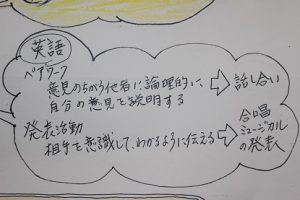 英語
ペアワーク
意見のちがう他者に論理的に、
自分の意見を説明する
話し合い
発表活動
相手を意識して、わかるように伝える
合唱
ミュージカル
の発表